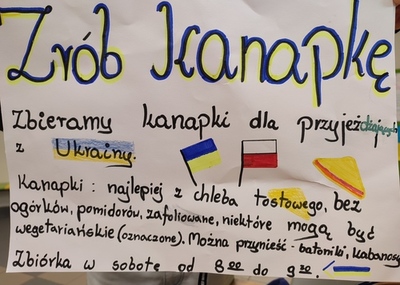 Zrób Kanapkę
Zbieramy kanapki dla przyjeżdżających
z Ukrainy.
Kanapki : najlepiej z chleba tostowego, bez
ogórków, pomidorów, zafoliowane, niektóre mogą być
wegetariańskie (oznaczone). Można przynieść - batoniki, kabanosy
Zbiórka w sobotę od 8⁰⁰ do 9³⁰.